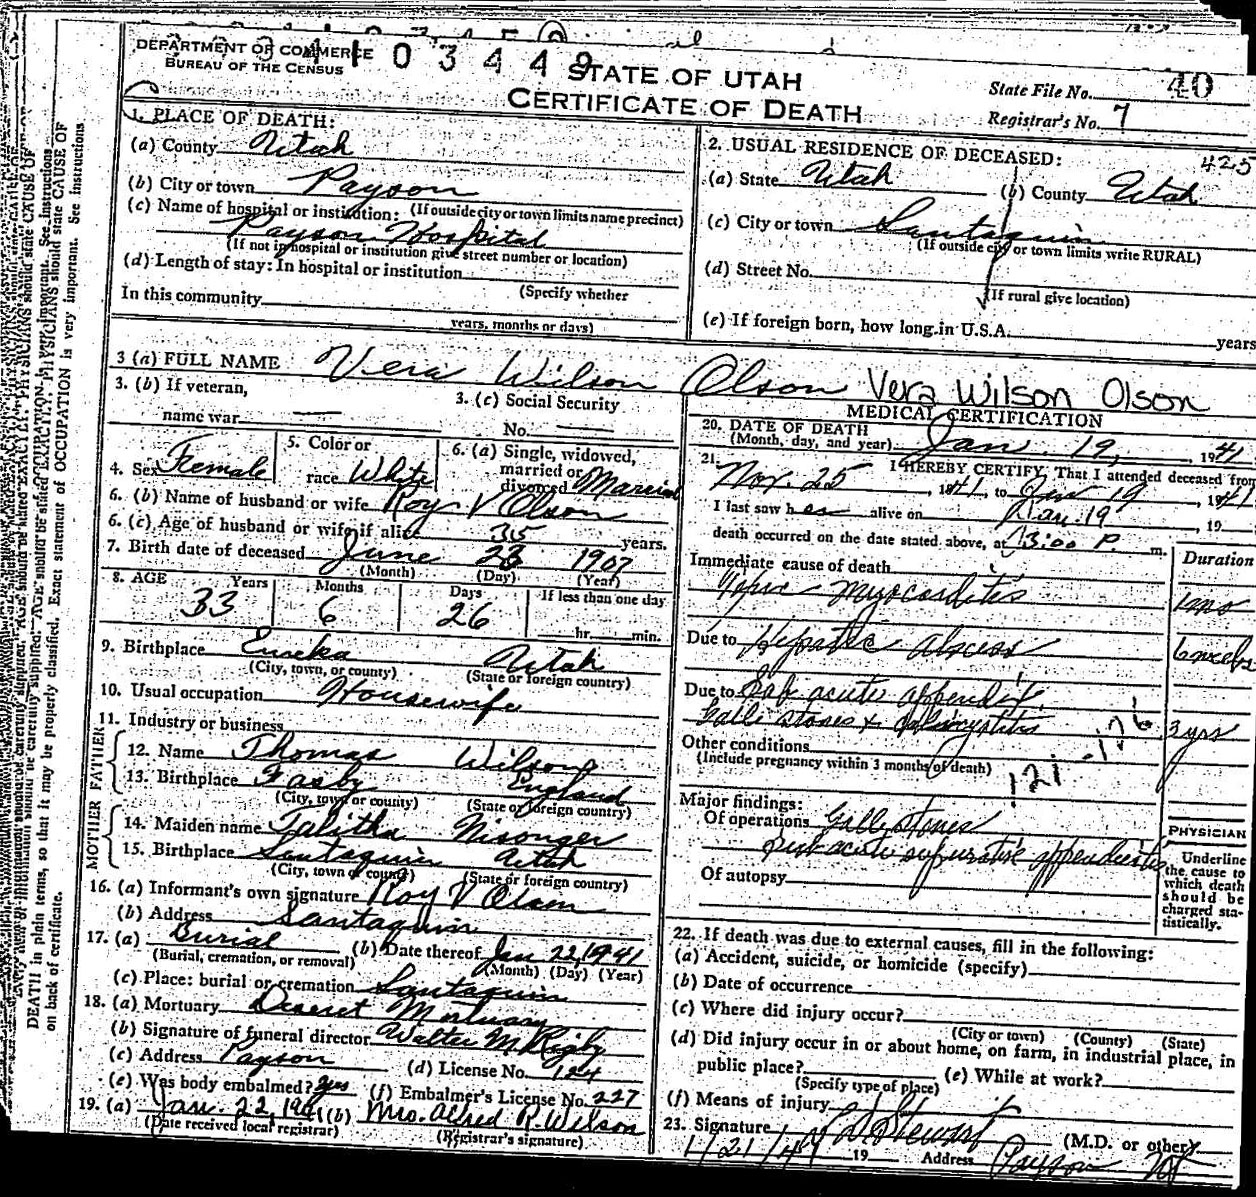 DEPARTMENT OF COMMERCE
BUREAU OF THE CENSUS
1 0 3 4 4 9
STATE OF UTAH
CERTIFICATE OF DEATH
State File No. 40
Registrar's No. 7
1. PLACE OF DEATH:
(a) County Utah
(b) City or town Payson
(If outside city or town limits name precinct)
(c) Name of hospital or institution:
Payson Hospital
(If not in hospital or institution give street number or location)
(d) Length of stay: In hospital or institution
(Specify whether
In this community
years, months or days)
2. USUAL RESIDENCE OF DECEASED: 425
(a) State Utah (b) County Utah
(c) City or town Santaquin
(If outside city or town limits write RURAL)
(d) Street No.
(If rural give location)
(e) If foreign born, how long in U.S.A. years
3 (a) FULL NAME Vera Wilson Olson Vera Wilson Olson
3. (b) If veteran,
name war —
3. (c) Social Security
No. —
4. Sex Female
5. Color or
race White
6. (a) Single, widowed,
married or
divorced Married
6. (b) Name of husband or wife Roy V Olson
6. (c) Age of husband or wife if alive 35 years.
7. Birth date of deceased June 23 1907
(Month) (Day) (Year)
8. AGE Years Months Days If less than one day
33 6 26 hr. min.
9. Birthplace Eureka Utah
(City, town, or county) (State or foreign country)
10. Usual occupation Housewife
11. Industry or business
FATHER
12. Name Thomas Wilson
13. Birthplace England
(City, town or county) (State or foreign country)
MOTHER
14. Maiden name Talitha Nisonger
15. Birthplace Santaquin Utah
(City, town or county) (State or foreign country)
16. (a) Informant's own signature Roy V Olson
(b) Address Santaquin
17. (a) Burial (b) Date thereof Jan 22, 1941
(Burial, cremation, or removal) (Month) (Day) (Year)
(c) Place: burial or cremation Santaquin
18. (a) Mortuary Deseret Mortuary
(b) Signature of funeral director Walter M Rigby
(c) Address Payson (d) License No. 124
(e) Was body embalmed? yes (f) Embalmer's License No. 227
19. (a) Jan. 22, 1941 (b) Mrs. Alfred R. Wilson
(Date received local registrar) (Registrar's signature)
MEDICAL CERTIFICATION
20. DATE OF DEATH
(Month, day, and year) Jan. 19, 1941
21. I HEREBY CERTIFY, That I attended deceased from
Nov. 25, 1941, to Jan 19, 1941
I last saw her alive on Jan. 19, 19
death occurred on the date stated above, at 3:00 P. m.
Immediate cause of death Duration
myocarditis 1 mo
Due to Hepatic abscess 6 weeks
Due to Sub acute appendix.
Galle stones & 3 yrs
Other conditions
(Include pregnancy within 3 months of death)
121 - 126
Major findings:
Of operations Gall stones
sub acute appendicitis
Of autopsy
PHYSICIAN
Underline
the cause to
which death
should be
charged sta-
tistically.
22. If death was due to external causes, fill in the following:
(a) Accident, suicide, or homicide (specify)
(b) Date of occurrence
(c) Where did injury occur?
(City or town) (County) (State)
(d) Did injury occur in or about home, on farm, in industrial place, in
public place? (e) While at work?
(Specify type of place)
(f) Means of injury
23. Signature Stewart (M.D. or other)
1/21/41 19 Address Payson
DEATH in plain terms, so that it may be properly classified. Exact statement of OCCUPATION is very important. See instructions
on back of certificate.